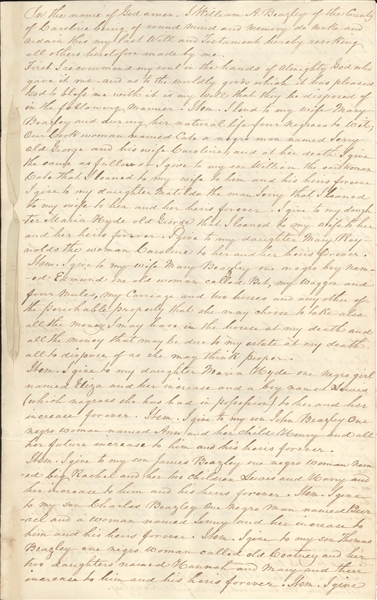 In the name of God amen. I William A. Beazley of the County
of Caroline being of sound mind and memory do make and
ordain this my last Will and Testament hereby revoking
all others heretofore made by me.
First I recommend my soul in the hands of Almighty God who
gave it me and as to the worldly goods which it has pleased
God to bless me with it is my will that they be disposed of
in the following manner. Item. I lend to my wife Mary
Beazley and during her natural life four negroes to Wit,
One Cook woman named Cate a negro man named Jerry
old George and his wife Caroline, and at her death I give
the same as follows. I give to my son William the woman
Cate that I loaned to my wife to him and his heirs forever
I give to my daughter Matilda the man Jerry that I loaned
to my wife to her and her heirs forever. I give to my daugh
ter Maria Hyde old George that I loaned to my wife to her
and her heirs forever. I give to my daughter Mary Rey
nolds the woman Caroline to her and her heirs forever.
Item. I give to my wife Mary Beazley one negro boy nam
ed Edmond one old woman called Bet, my waggon and
four Mules, my Carriage and two horses and any other of
the perishable property that she may choose to take also
all the money I may have in the house at my death and
all the money that may be due to my estate at my death
all to dispose of as she may think proper.
Item. I give to my daughter Maria Hyde one negro girl
named Eliza and her increase and a boy named Lewis
(which negroes she has had in possession) to her and her
increase forever. Item. I give to my son John Beazley One
negro woman named Ann and her child Henry and all
her future increase to him and his heirs forever.
Item. I give to my son James Beazley one negro woman nam
ed big Rachel and her two children Lewis and Harry and
her increase to him and his heirs forever. Item. I give
to my son Charles Beazley one negro man named
and a woman named and her increase to
him and his heirs forever. Item. I give to my son Thomas
Beazley one negro woman called old Courtney and her
two daughters named Hannah and Mary and their
increase to him and his heirs forever. Item. I give